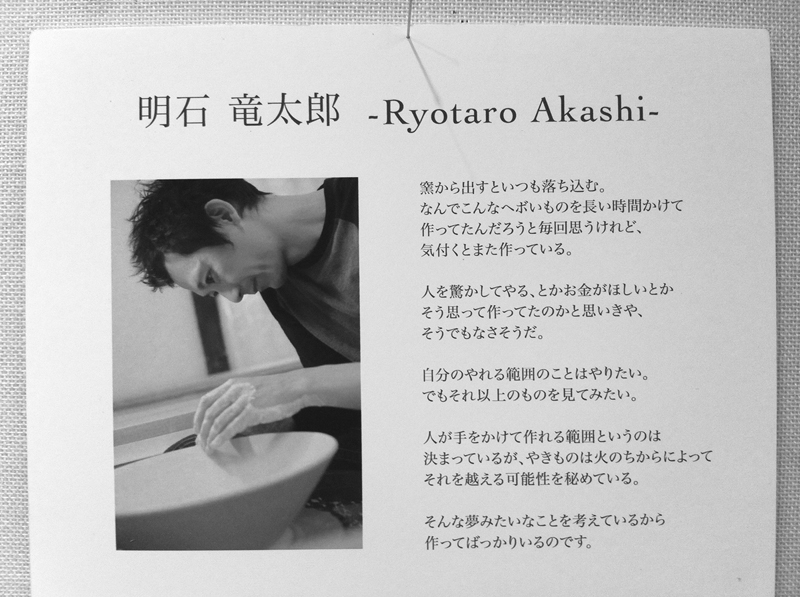 明石 竜太郎 -Ryotaro Akashi-
窯から出すといつも落ち込む。
なんでこんなヘボいものを長い時間かけて
作ってたんだろうと毎回思うけれど、
気付くとまた作っている。
人を驚かしてやる、とかお金がほしいとか
そう思って作ってたのかと思いきや、
そうでもなさそうだ。
自分のやれる範囲のことはやりたい。
でもそれ以上のものを見てみたい。
人が手をかけて作れる範囲というのは
決まっているが、やきものは火のちからによって
それを越える可能性を秘めている。
そんな夢みたいなことを考えているから
作ってばっかりいるのです。